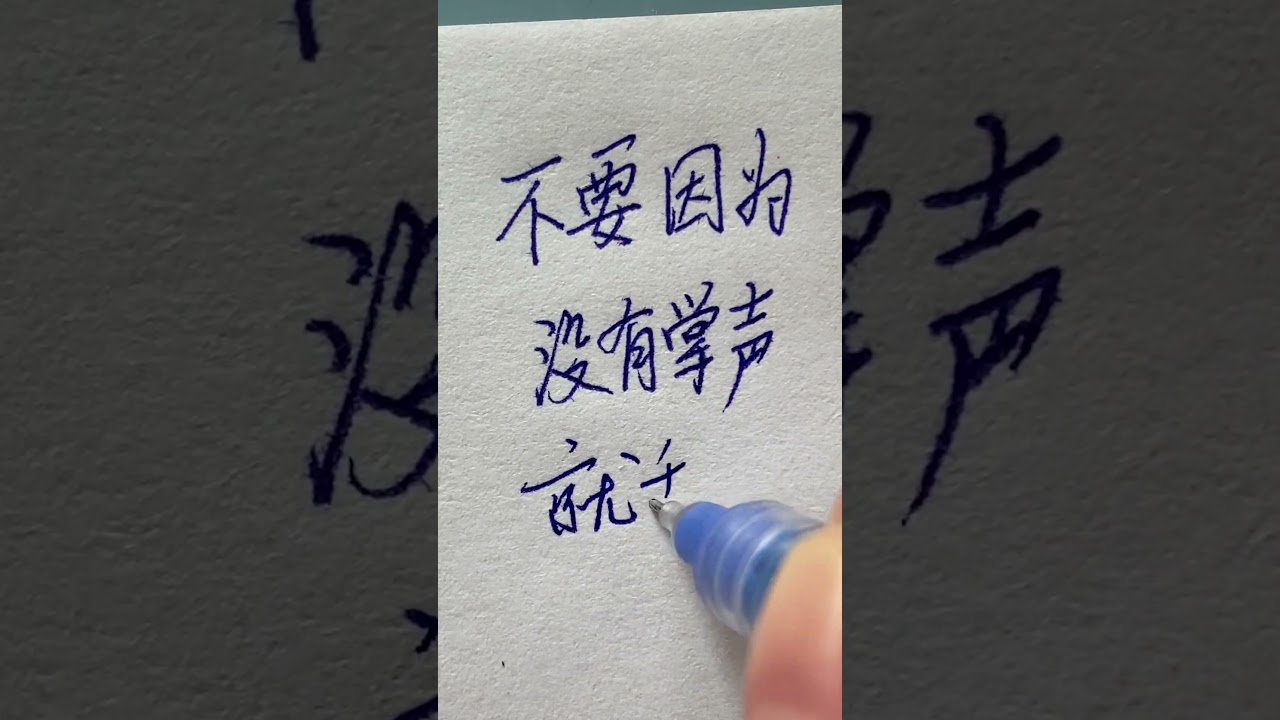 不要因为
没有掌声
就